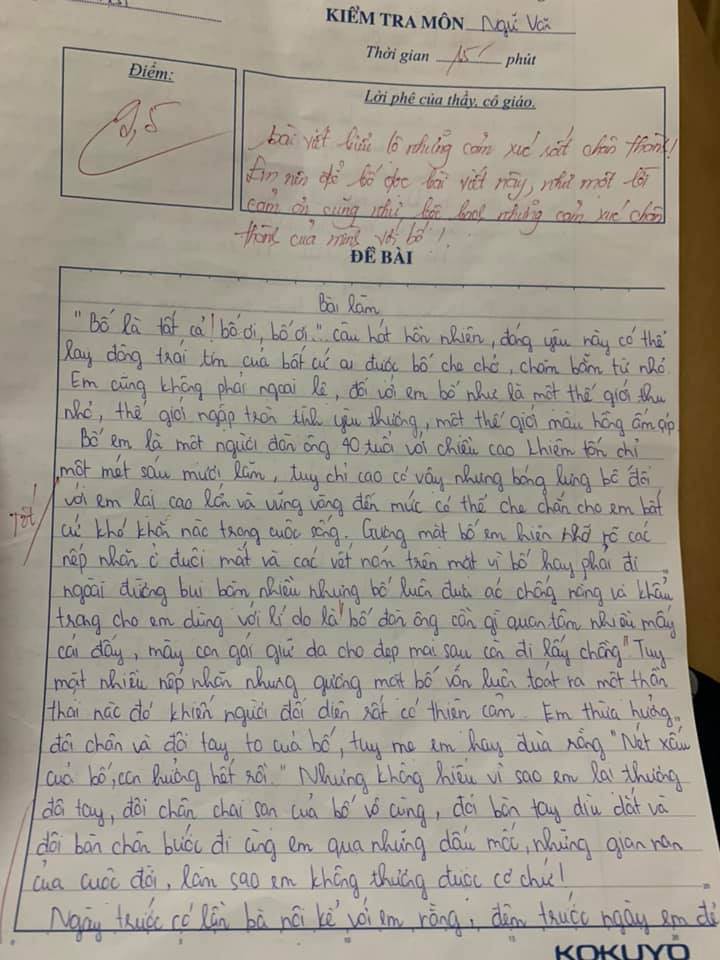 KIỂM TRA MÔN Ngữ Văn
Thời gian 15' phút
Điểm:
Lời phê của thầy, cô giáo.
9,5
bài viết biểu lộ những cảm xúc rất chân thành!
Em nên để bố đọc bài viết này, như một lời
cảm ơn cũng như bộc bạch những cảm xúc chân
thành của mình với bố!
ĐỀ BÀI
Bài làm
"Bố là tất cả! bố ơi, bố ơi." câu hát hồn nhiên, đáng yêu này có thể
lay động trái tim của bất cứ ai được bố che chở, chăm bẵm từ nhỏ.
Em cũng không phải ngoại lệ, đối với em bố như là một thế giới thu
nhỏ, thế giới ngập tràn tình yêu thương, một thế giới màu hồng ấm áp.
Bố em là một người đàn ông 40 tuổi với chiều cao khiêm tốn chỉ
một mét sáu mươi lăm, tuy chỉ cao có vậy nhưng bóng lưng bố đối
với em lại cao lớn và vững vàng đến mức có thể che chắn cho em bất
Tốt!
cứ khó khăn nào trong cuộc sống. Gương mặt bố em hiện rõ các
nếp nhăn ở đuôi mắt và các vết nám trên mặt vì bố hay phải đi
ngoài đường bụi bặm nhiều nhưng bố luôn đưa áo chống nắng và khẩu
trang cho em dùng với lí do là "bố đàn ông cần gì quan tâm nhiều mấy
cái đấy, mày con gái giữ da cho đẹp mai sau còn đi lấy chồng" Tuy
mặt nhiều nếp nhăn nhưng gương mặt bố vẫn luôn toát ra một thần
thái nào đó khiến người đối diện rất có thiện cảm. Em thừa hưởng
đôi chân và đôi tay to của bố, tuy mẹ em hay đùa rằng "Nét xấu
của bố, con hưởng hết rồi." Nhưng không hiểu vì sao em lại thương
đôi tay, đôi chân chai sạn của bố vô cùng, đôi bàn tay dìu dắt và
đôi bàn chân bước đi cùng em qua những dấu mốc, những gian nan
của cuộc đời, làm sao em không thương được cơ chứ!
Ngày trước có lần bà nội kể với em rằng, đêm trước ngày em đẻ
KOKUYO